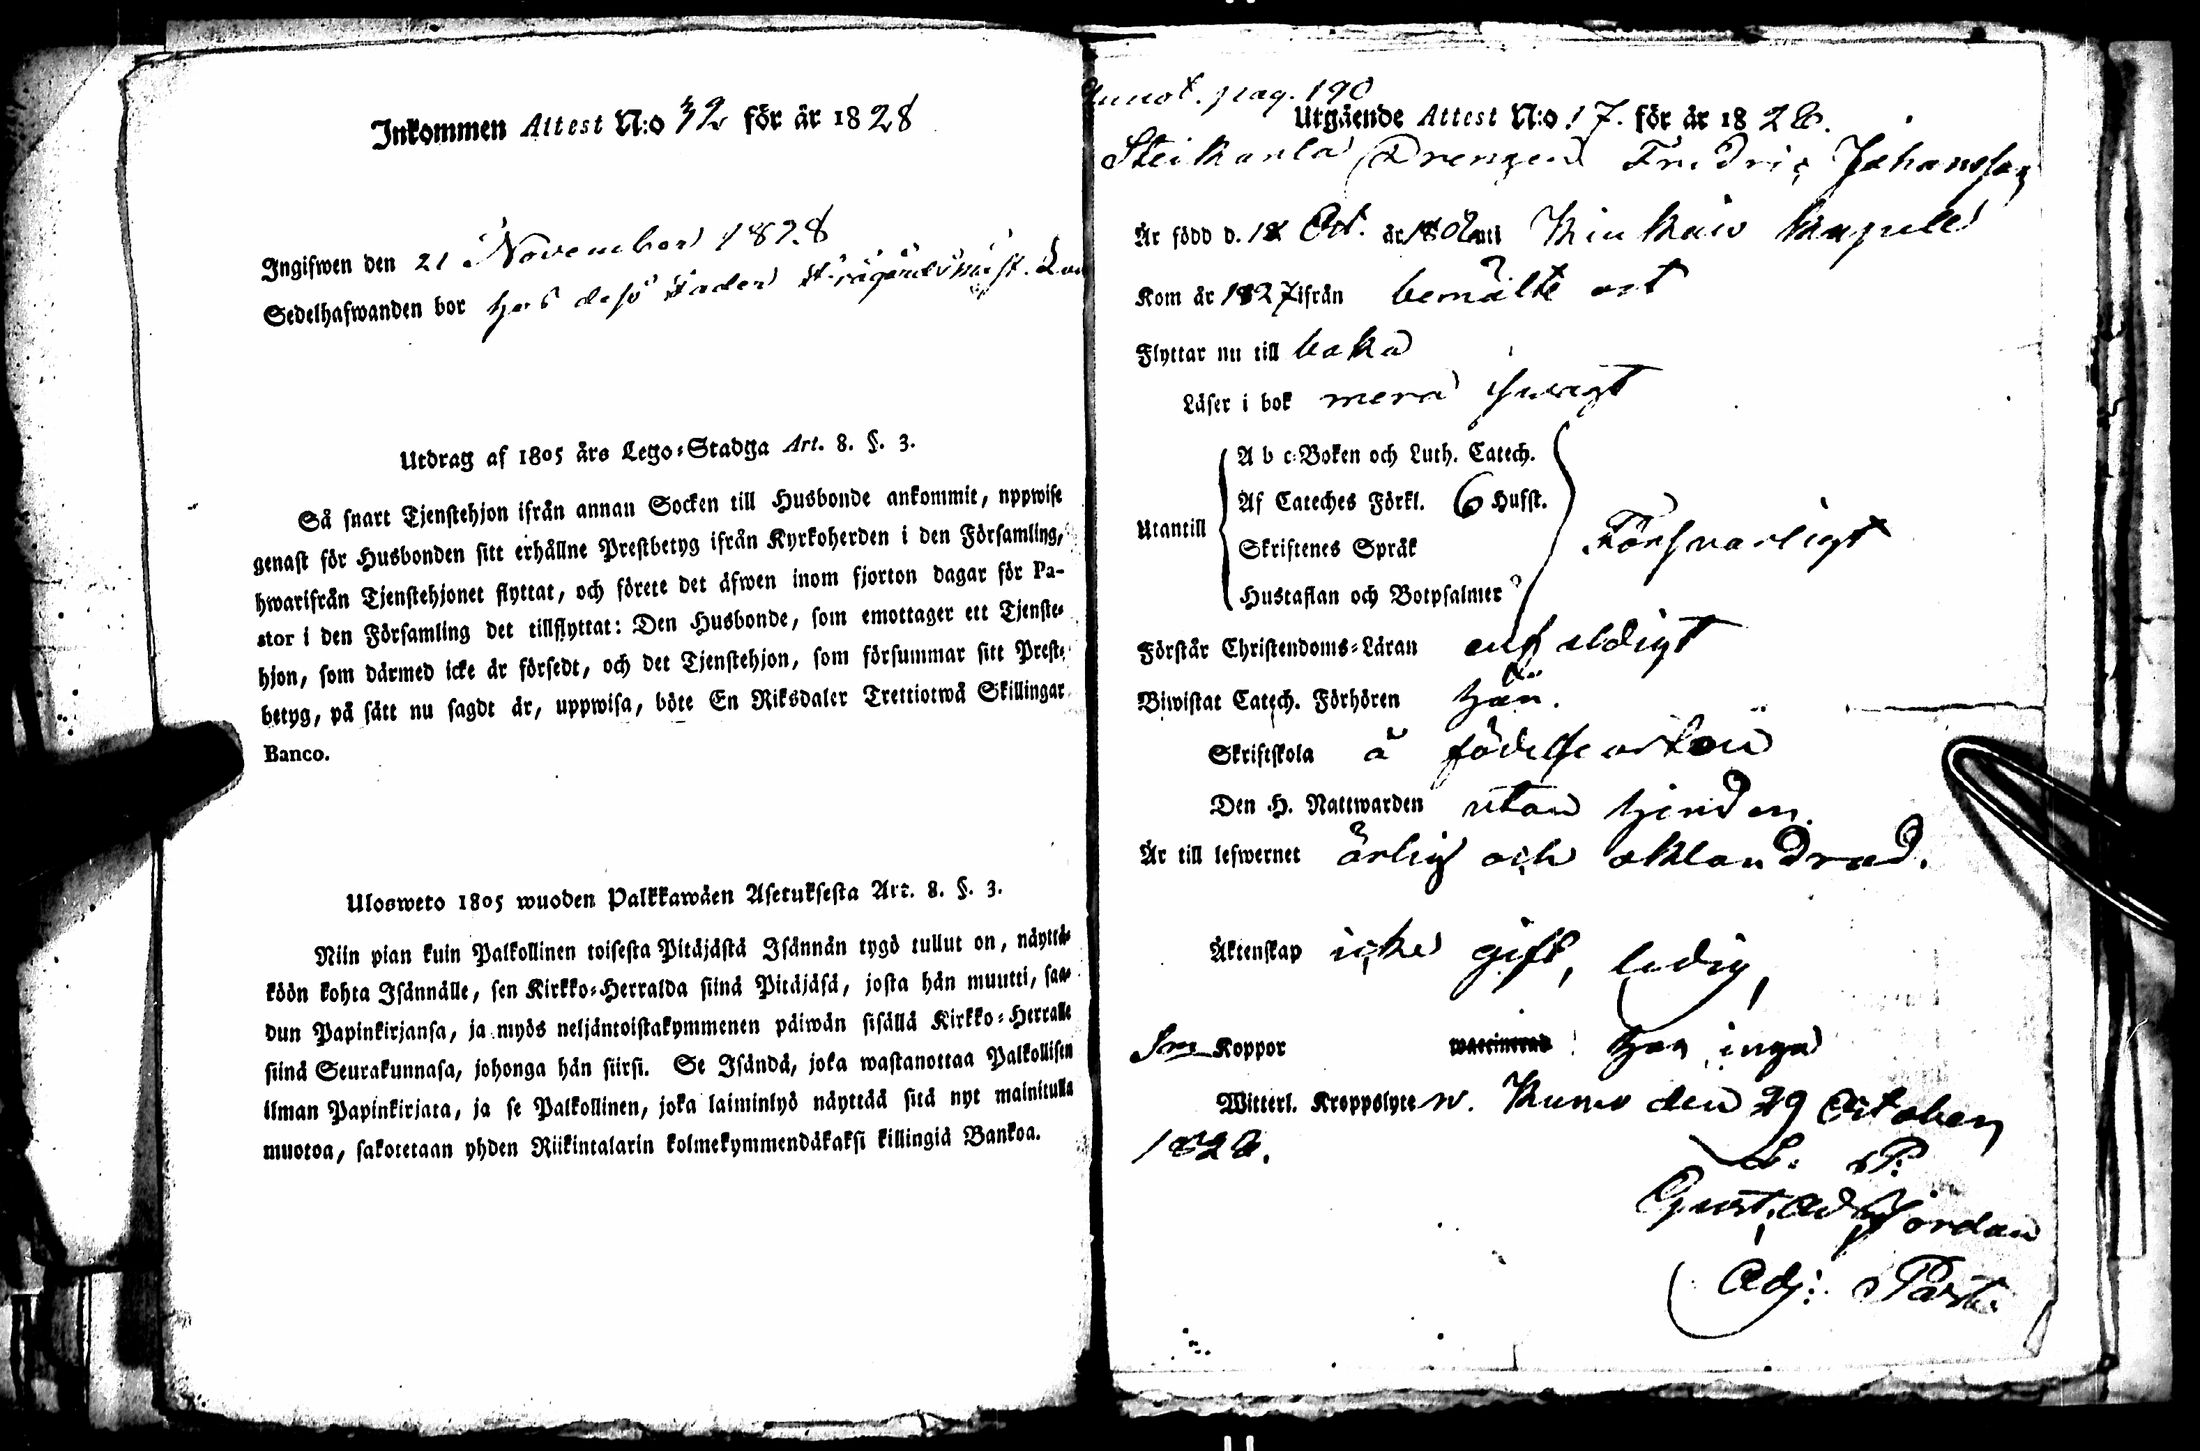 Inkommen Attest N:o 32 för år 1828
Ingifwen den 21 November 1828
Sedelhafwanden bor hos dess Fader Trägårdsmäst.
Utdrag af 1805 års Lego-Stadga Art. 8. §. 3.
Så snart Tjenstehjon ifrån annan Socken till Husbonde ankommit, uppwise
genast för Husbonden sitt erhållne Prestbetyg ifrån Kyrkoherden i den Församling,
hwarifrån Tjenstehjonet flyttat, och förete det äfwen inom fjorton dagar för Pa-
stor i den Församling det tillflyttat: Den Husbonde, som emottager ett Tjenste-
hjon, som därmed icke är försedt, och det Tjenstehjon, som försummar sitt Prest-
betyg, på sätt nu sagdt är, uppwisa, böte En Riksdaler Trettiotwå Skillingar
Banco.
Ulosweto 1805 wuoden Palkkawäen Asetuksesta Art. 8. §. 3.
Niin pian kuin Palkollinen toisesta Pitäjästä Isännän tygö tullut on, näyttä-
köön kohta Isännälle, sen Kirkko-Herralda siinä Pitäjäsä, josta hän muutti, saa-
dun Papinkirjansa, ja myös neljäntoistakymmenen päiwän sisällä Kirkko-Herralle
siinä Seurakunnasa, johonga hän siirsi. Se Isändä, joka wastanottaa Palkollisen
ilman Papinkirjata, ja se Palkollinen, joka laiminlyö näyttää sitä nyt mainitulla
muotoa, sakotetaan yhden Riikintalarin kolmekymmendäkaksi killingiä Bankoa.
Annot. pag. 190
Utgående Attest N:o 17. för år 1828.
Drengen Fridric Johansson
Är född d. 18 Oct. år 180 uti Kiukais kapell
Kom år 1827 ifrån bemälte ort
Flyttar nu till baka
Läser i bok mera swagt
Utantill
A b c-Boken och Luth. Catech.
Af Cateches Förkl. 6 Hufst.
Skriftenes Språk
Hustaflan och Botpsalmer
Försvarligt
Förstår Christendoms-Läran enfaldigt
Biwistat Catech. Förhören här.
Skriftskola å födelseorten
Den H. Nattwarden utan hinder.
Är till lefwernet ärlig och oklandrad.
Äktenskap icke gift, ledig,
Koppor waccinerad har inga
Witterl. Kroppslyte w. Kumo den 29 October
1828.
L. P.
Gust. Ad. Hjordan
Adj: Past: